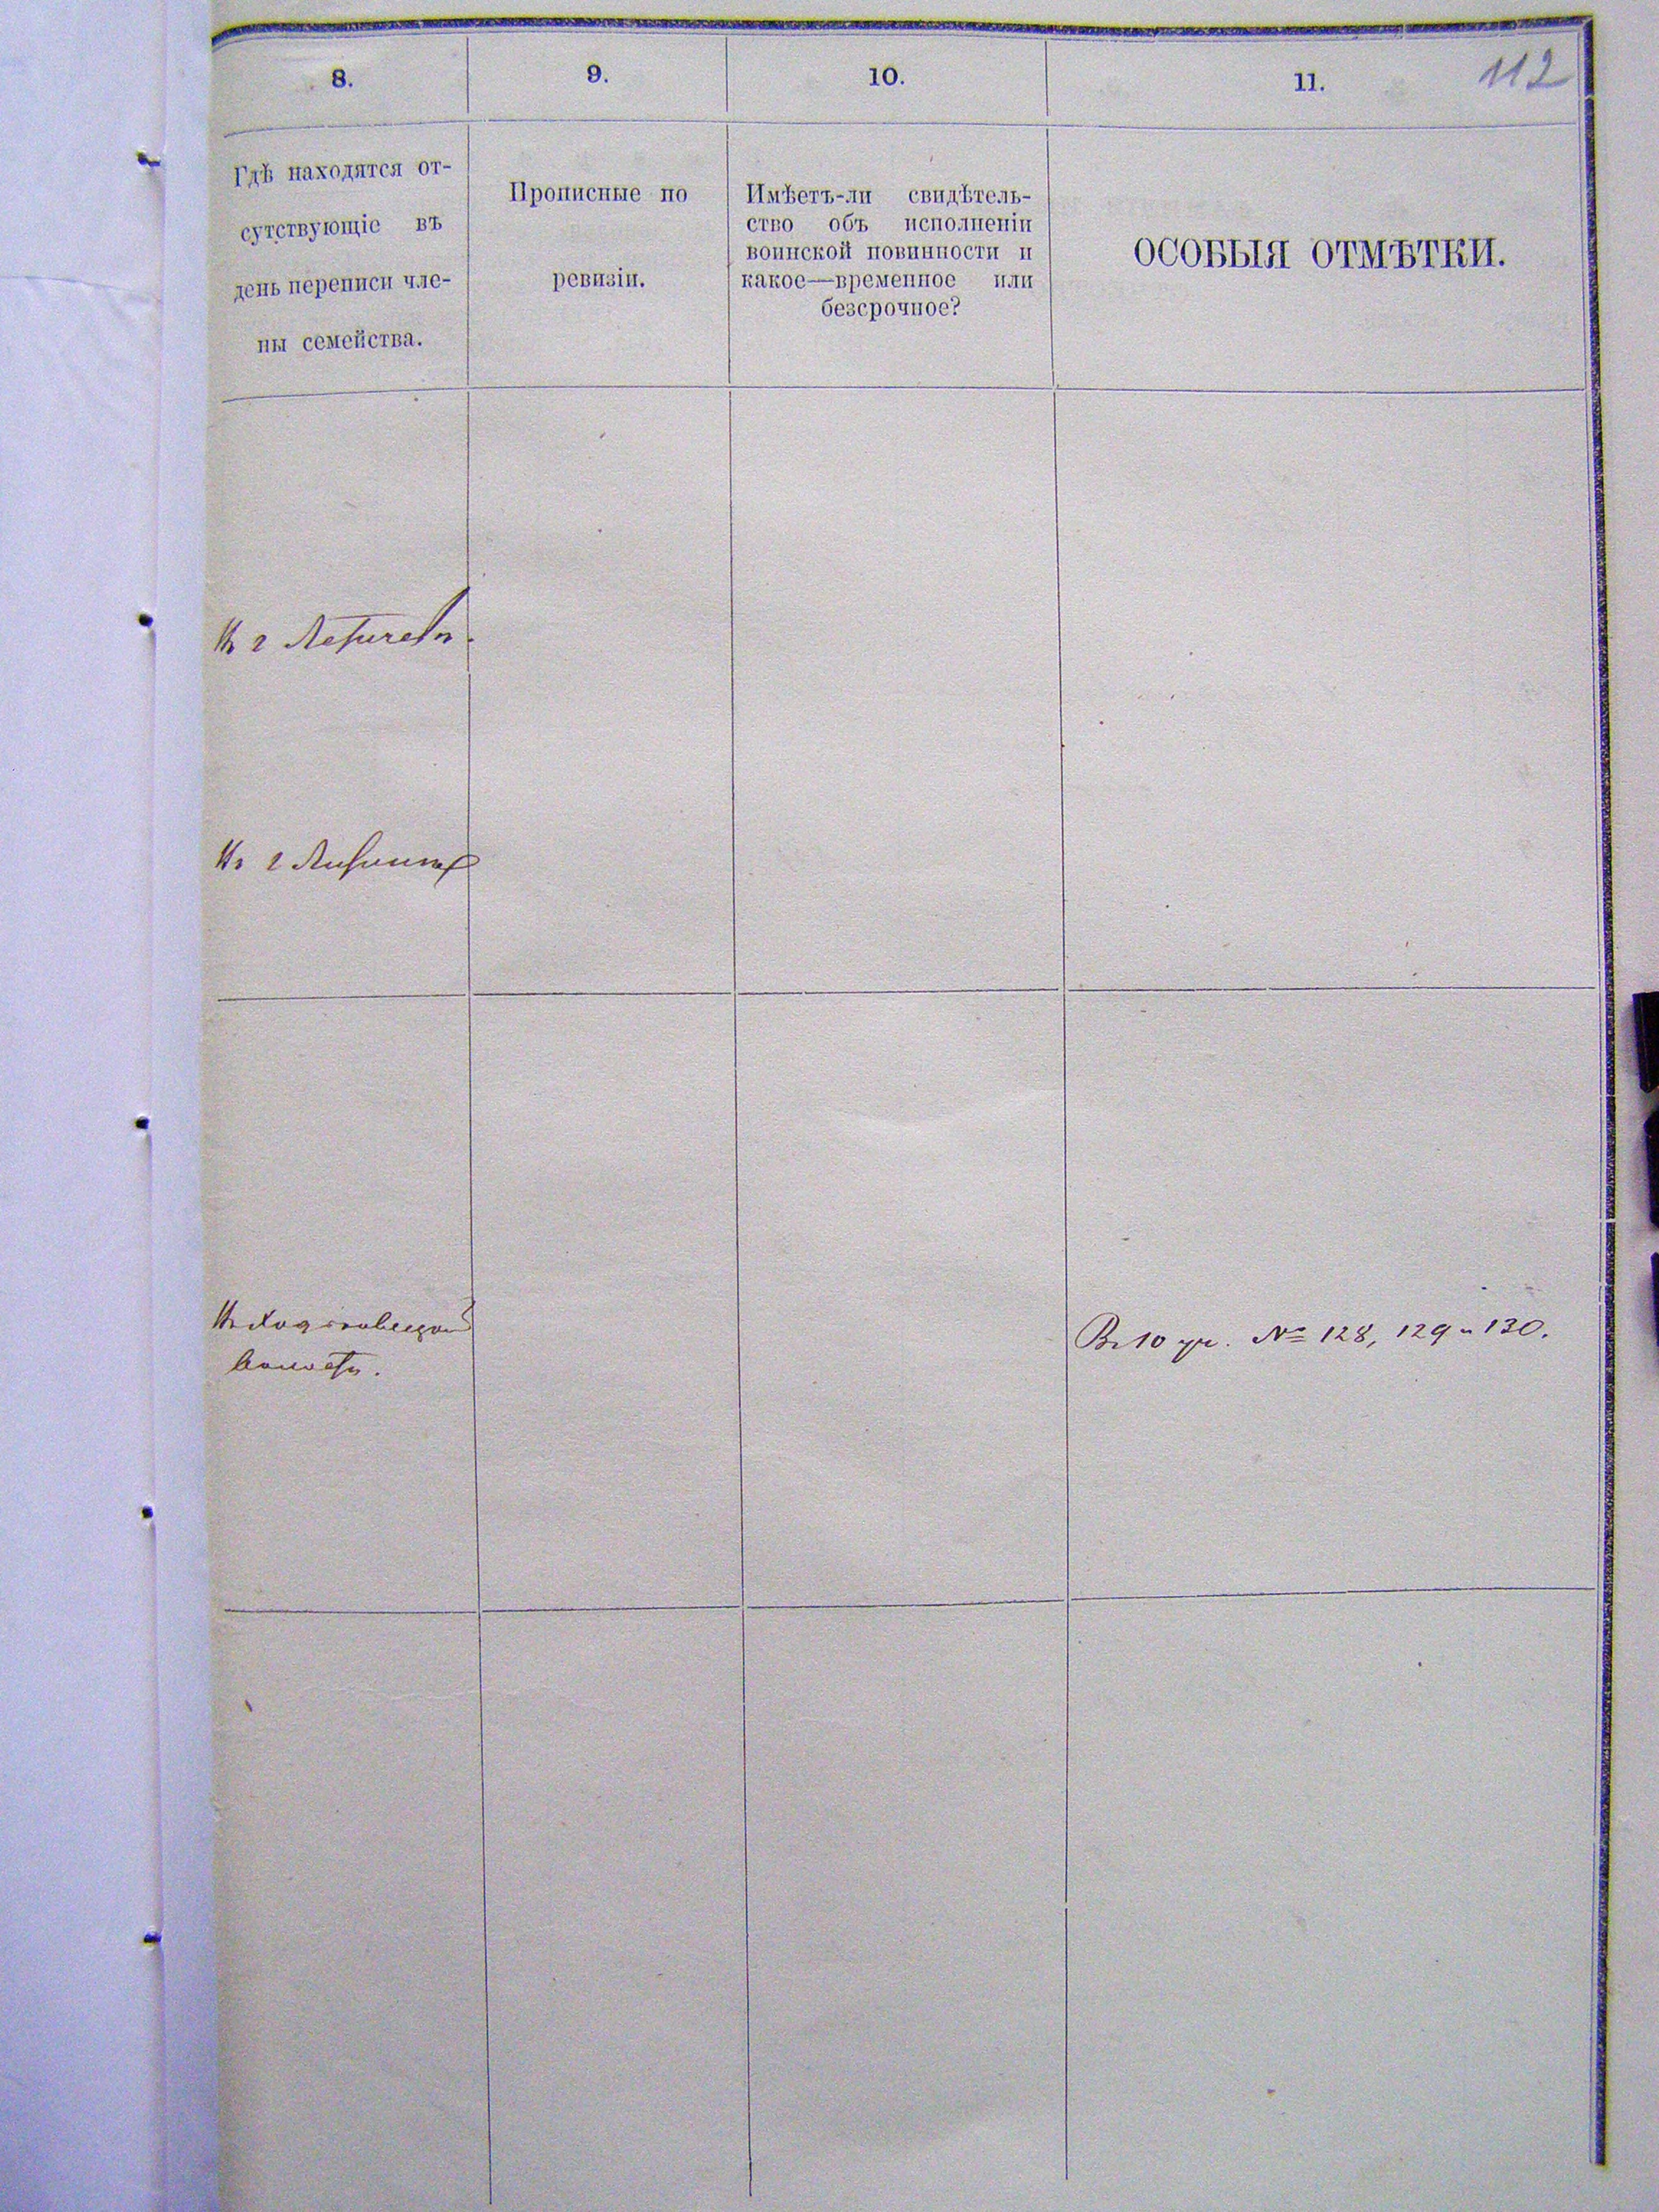 8.
9.
10.
11.
112
Гдѣ находятся от-
сутствующіе въ
день переписи чле-
ны семейства.
Прописные по
ревизіи.
Имѣетъ-ли свидѣтель-
ство объ исполненіи
воинской повинности и
какое—временное или
безсрочное?
ОСОБЫЯ ОТМѢТКИ.
Въ г Летичевѣ.
Въ г
Въ
волости.
Въ 10 уч. № 128, 129 и 130.